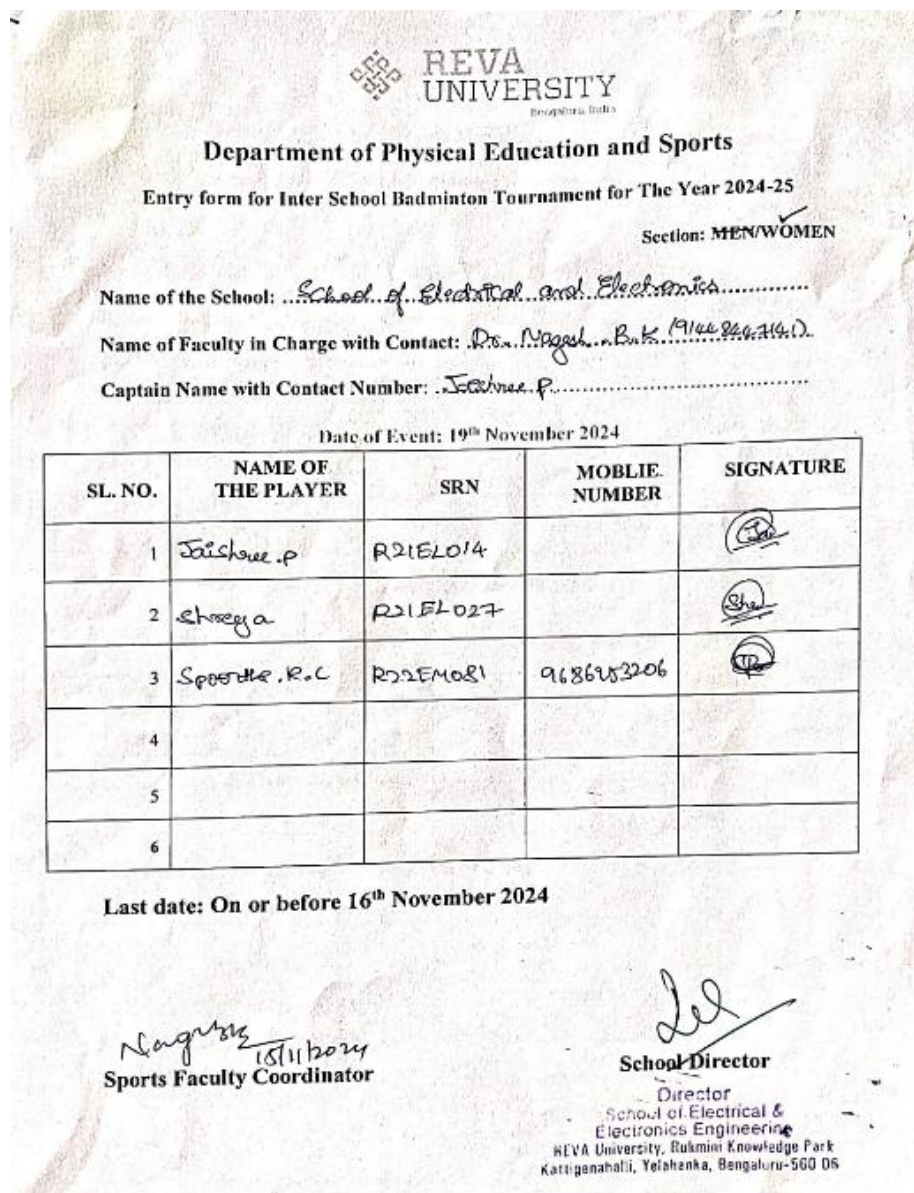 REVA
UNIVERSITY
Bengaluru, India
Department of Physical Education and Sports
Entry form for Inter School Badminton Tournament for The Year 2024-25
Section: MEN/WOMEN
Name of the School: School of Electrical and Electronics
Name of Faculty in Charge with Contact: Dr. Nagesh B.K
Captain Name with Contact Number: Jaishree.P
Date of Event: 19th November 2024
SL. NO. NAME OF THE PLAYER SRN MOBLIE NUMBER SIGNATURE
1 Jaishree.P R21EL014 Jai
2 Shreeya R21EL027 Shre
3 Spoorthi.R.C R22EM081
4
5
6
Last date: On or before 16th November 2024
15/11/2024
Sports Faculty Coordinator
School Director
Director
School of Electrical &
Electronics Engineering
REVA University, Rukmini Knowledge Park
Kattigenahalli, Yelahanka, Bengaluru-560 06